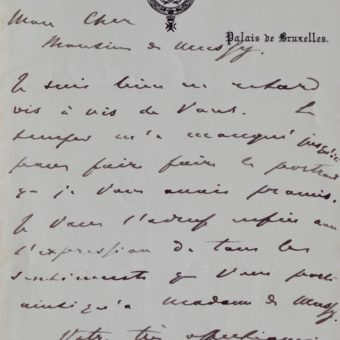 Mon Cher
Monsieur de Mussy.
Palais de Bruxelles.
Je suis bien en retard
vis à vis de Vous. Le
temps m'a manqué jusqu'ici
pour faire faire le portrait
que je Vous avais promis.
Je Vous l'adresse enfin avec
l'expression de tous les
sentiments que Vous porte
ainsi qu'à Madame de Mussy.
Votre très affectionné